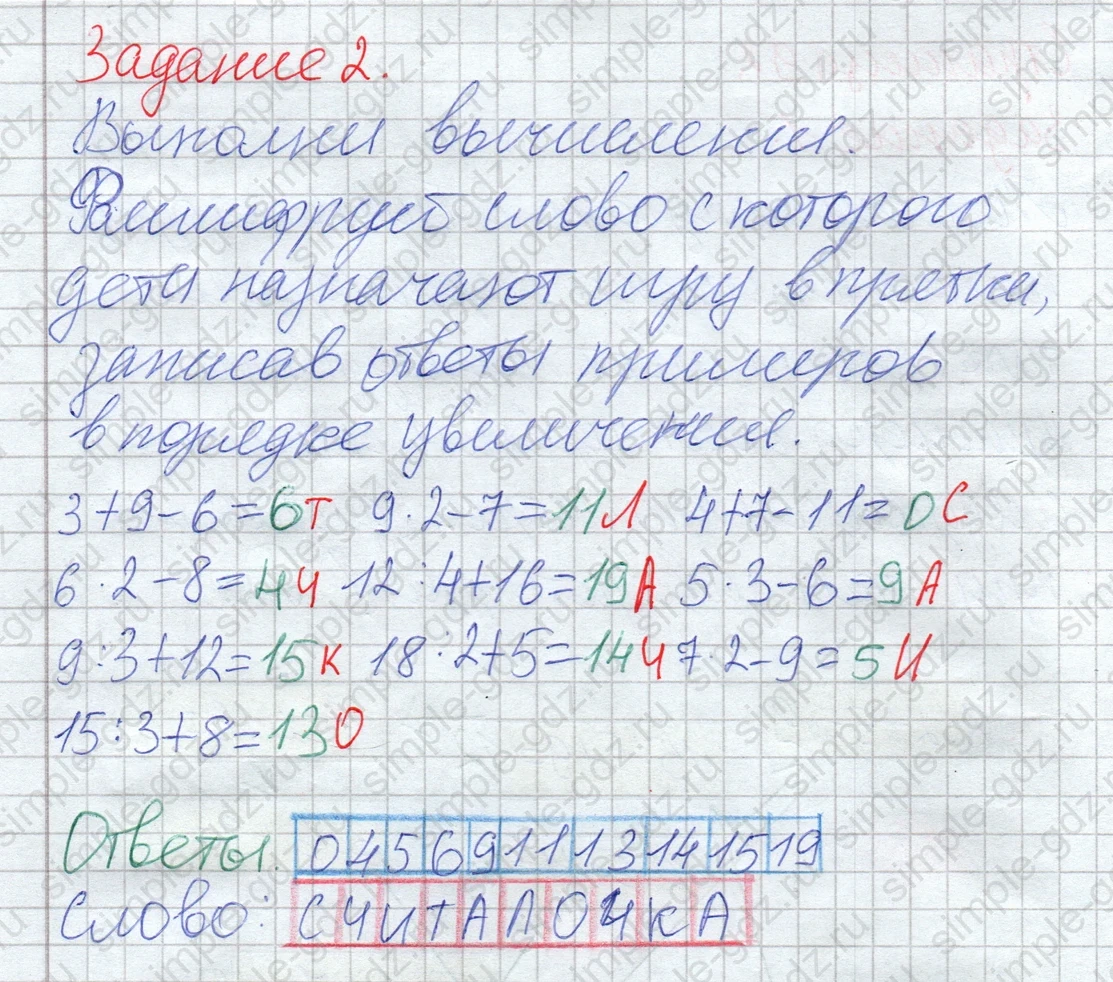 Задание 2.
Выполни вычисления.
Расшифруй слово с которого
дети назначают игру в прятки,
записав ответы примеров
в порядке увеличения.
3+9-6=6т 9·2-7=11Л 4+7-11=0С
6·2-8=4ч 12:4+16=19А 5·3-6=9А
9:3+12=15к 18:2+5=14ч 7·2-9=5И
15:3+8=13О
Ответы. 0 4 5 6 9 11 13 14 15 19
Слово: С Ч И Т А Л О Ч К А
simple-gdz.ru